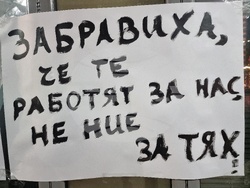 ЗАБРАВИХА,
ЧЕ ТЕ
РАБОТЯТ ЗА НАС,
НЕ НИЕ
ЗА ТЯХ!